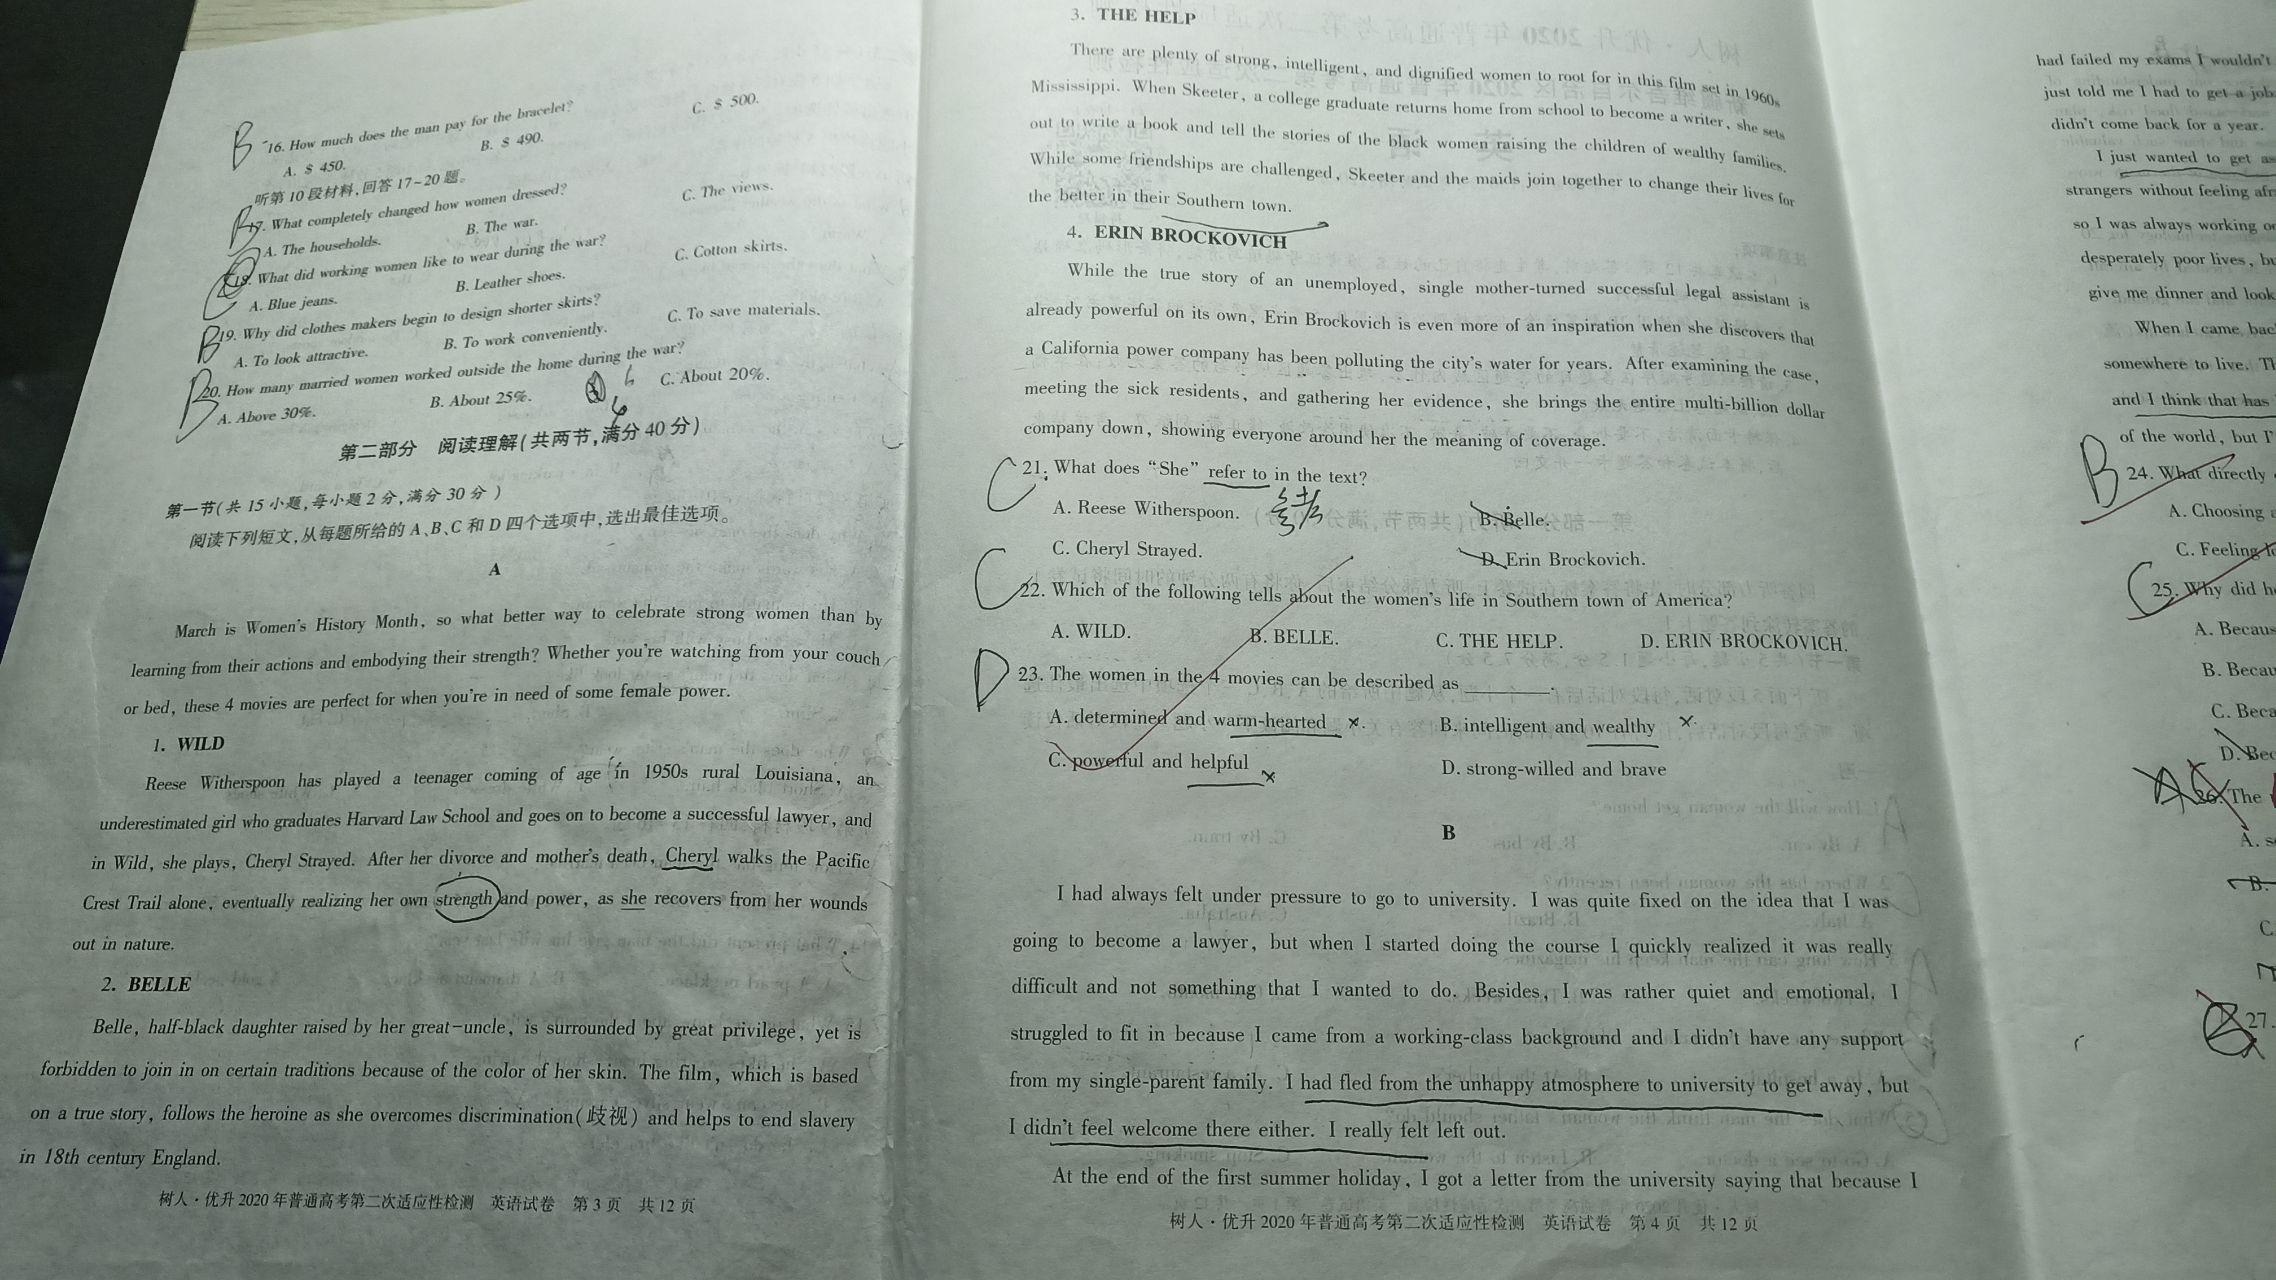 B 16. How much does the man pay for the bracelet?
A. $ 450. B. $ 490. C. $ 500.
听第 10 段材料,回答 17~20 题。
B 17. What completely changed how women dressed?
A. The households. B. The war. C. The views.
C 18. What did working women like to wear during the war?
A. Blue jeans. B. Leather shoes. C. Cotton skirts.
B 19. Why did clothes makers begin to design shorter skirts?
A. To look attractive. B. To work conveniently. C. To save materials.
B 20. How many married women worked outside the home during the war?
A. Above 30%. B. About 25%. C. About 20%.
第二部分 阅读理解(共两节,满分 40 分)
第一节(共 15 小题,每小题 2 分,满分 30 分)
阅读下列短文,从每题所给的 A、B、C 和 D 四个选项中,选出最佳选项。
A
March is Women's History Month, so what better way to celebrate strong women than by
learning from their actions and embodying their strength? Whether you're watching from your couch
or bed, these 4 movies are perfect for when you're in need of some female power.
1. WILD
Reese Witherspoon has played a teenager coming of age in 1950s rural Louisiana, an
underestimated girl who graduates Harvard Law School and goes on to become a successful lawyer, and
in Wild, she plays, Cheryl Strayed. After her divorce and mother's death, Cheryl walks the Pacific
Crest Trail alone, eventually realizing her own strength and power, as she recovers from her wounds
out in nature.
2. BELLE
Belle, half-black daughter raised by her great-uncle, is surrounded by great privilege, yet is
forbidden to join in on certain traditions because of the color of her skin. The film, which is based
on a true story, follows the heroine as she overcomes discrimination(歧视) and helps to end slavery
in 18th century England.
树人·优升 2020 年普通高考第二次适应性检测 英语试卷 第 3 页 共 12 页
3. THE HELP
There are plenty of strong, intelligent, and dignified women to root for in this film set in 1960s
Mississippi. When Skeeter, a college graduate returns home from school to become a writer, she sets
out to write a book and tell the stories of the black women raising the children of wealthy families.
While some friendships are challenged, Skeeter and the maids join together to change their lives for
the better in their Southern town.
4. ERIN BROCKOVICH
While the true story of an unemployed, single mother-turned successful legal assistant is
already powerful on its own, Erin Brockovich is even more of an inspiration when she discovers that
a California power company has been polluting the city's water for years. After examining the case,
meeting the sick residents, and gathering her evidence, she brings the entire multi-billion dollar
company down, showing everyone around her the meaning of coverage.
C 21. What does "She" refer to in the text?
A. Reese Witherspoon. 参考 B. Belle.
C. Cheryl Strayed. D. Erin Brockovich.
C 22. Which of the following tells about the women's life in Southern town of America?
A. WILD. B. BELLE. C. THE HELP. D. ERIN BROCKOVICH.
D 23. The women in the 4 movies can be described as ________.
A. determined and warm-hearted × B. intelligent and wealthy ×
C. powerful and helpful × D. strong-willed and brave
B
I had always felt under pressure to go to university. I was quite fixed on the idea that I was
going to become a lawyer, but when I started doing the course I quickly realized it was really
difficult and not something that I wanted to do. Besides, I was rather quiet and emotional. I
struggled to fit in because I came from a working-class background and I didn't have any support
from my single-parent family. I had fled from the unhappy atmosphere to university to get away, but
I didn't feel welcome there either. I really felt left out.
At the end of the first summer holiday, I got a letter from the university saying that because I
树人·优升 2020 年普通高考第二次适应性检测 英语试卷 第 4 页 共 12 页
had failed my exams I wouldn't
just told me I had to get a job
didn't come back for a year.
I just wanted to get as
strangers without feeling
so I was always working
desperately poor lives,
give me dinner and look
When I came
somewhere to live.
and I think that has
of the world, but
B 24. What directly
A. Choosing
C. Feeling
C 25. Why did
A.
B.
C.
D.
26. The
A.
B.
C.
27.